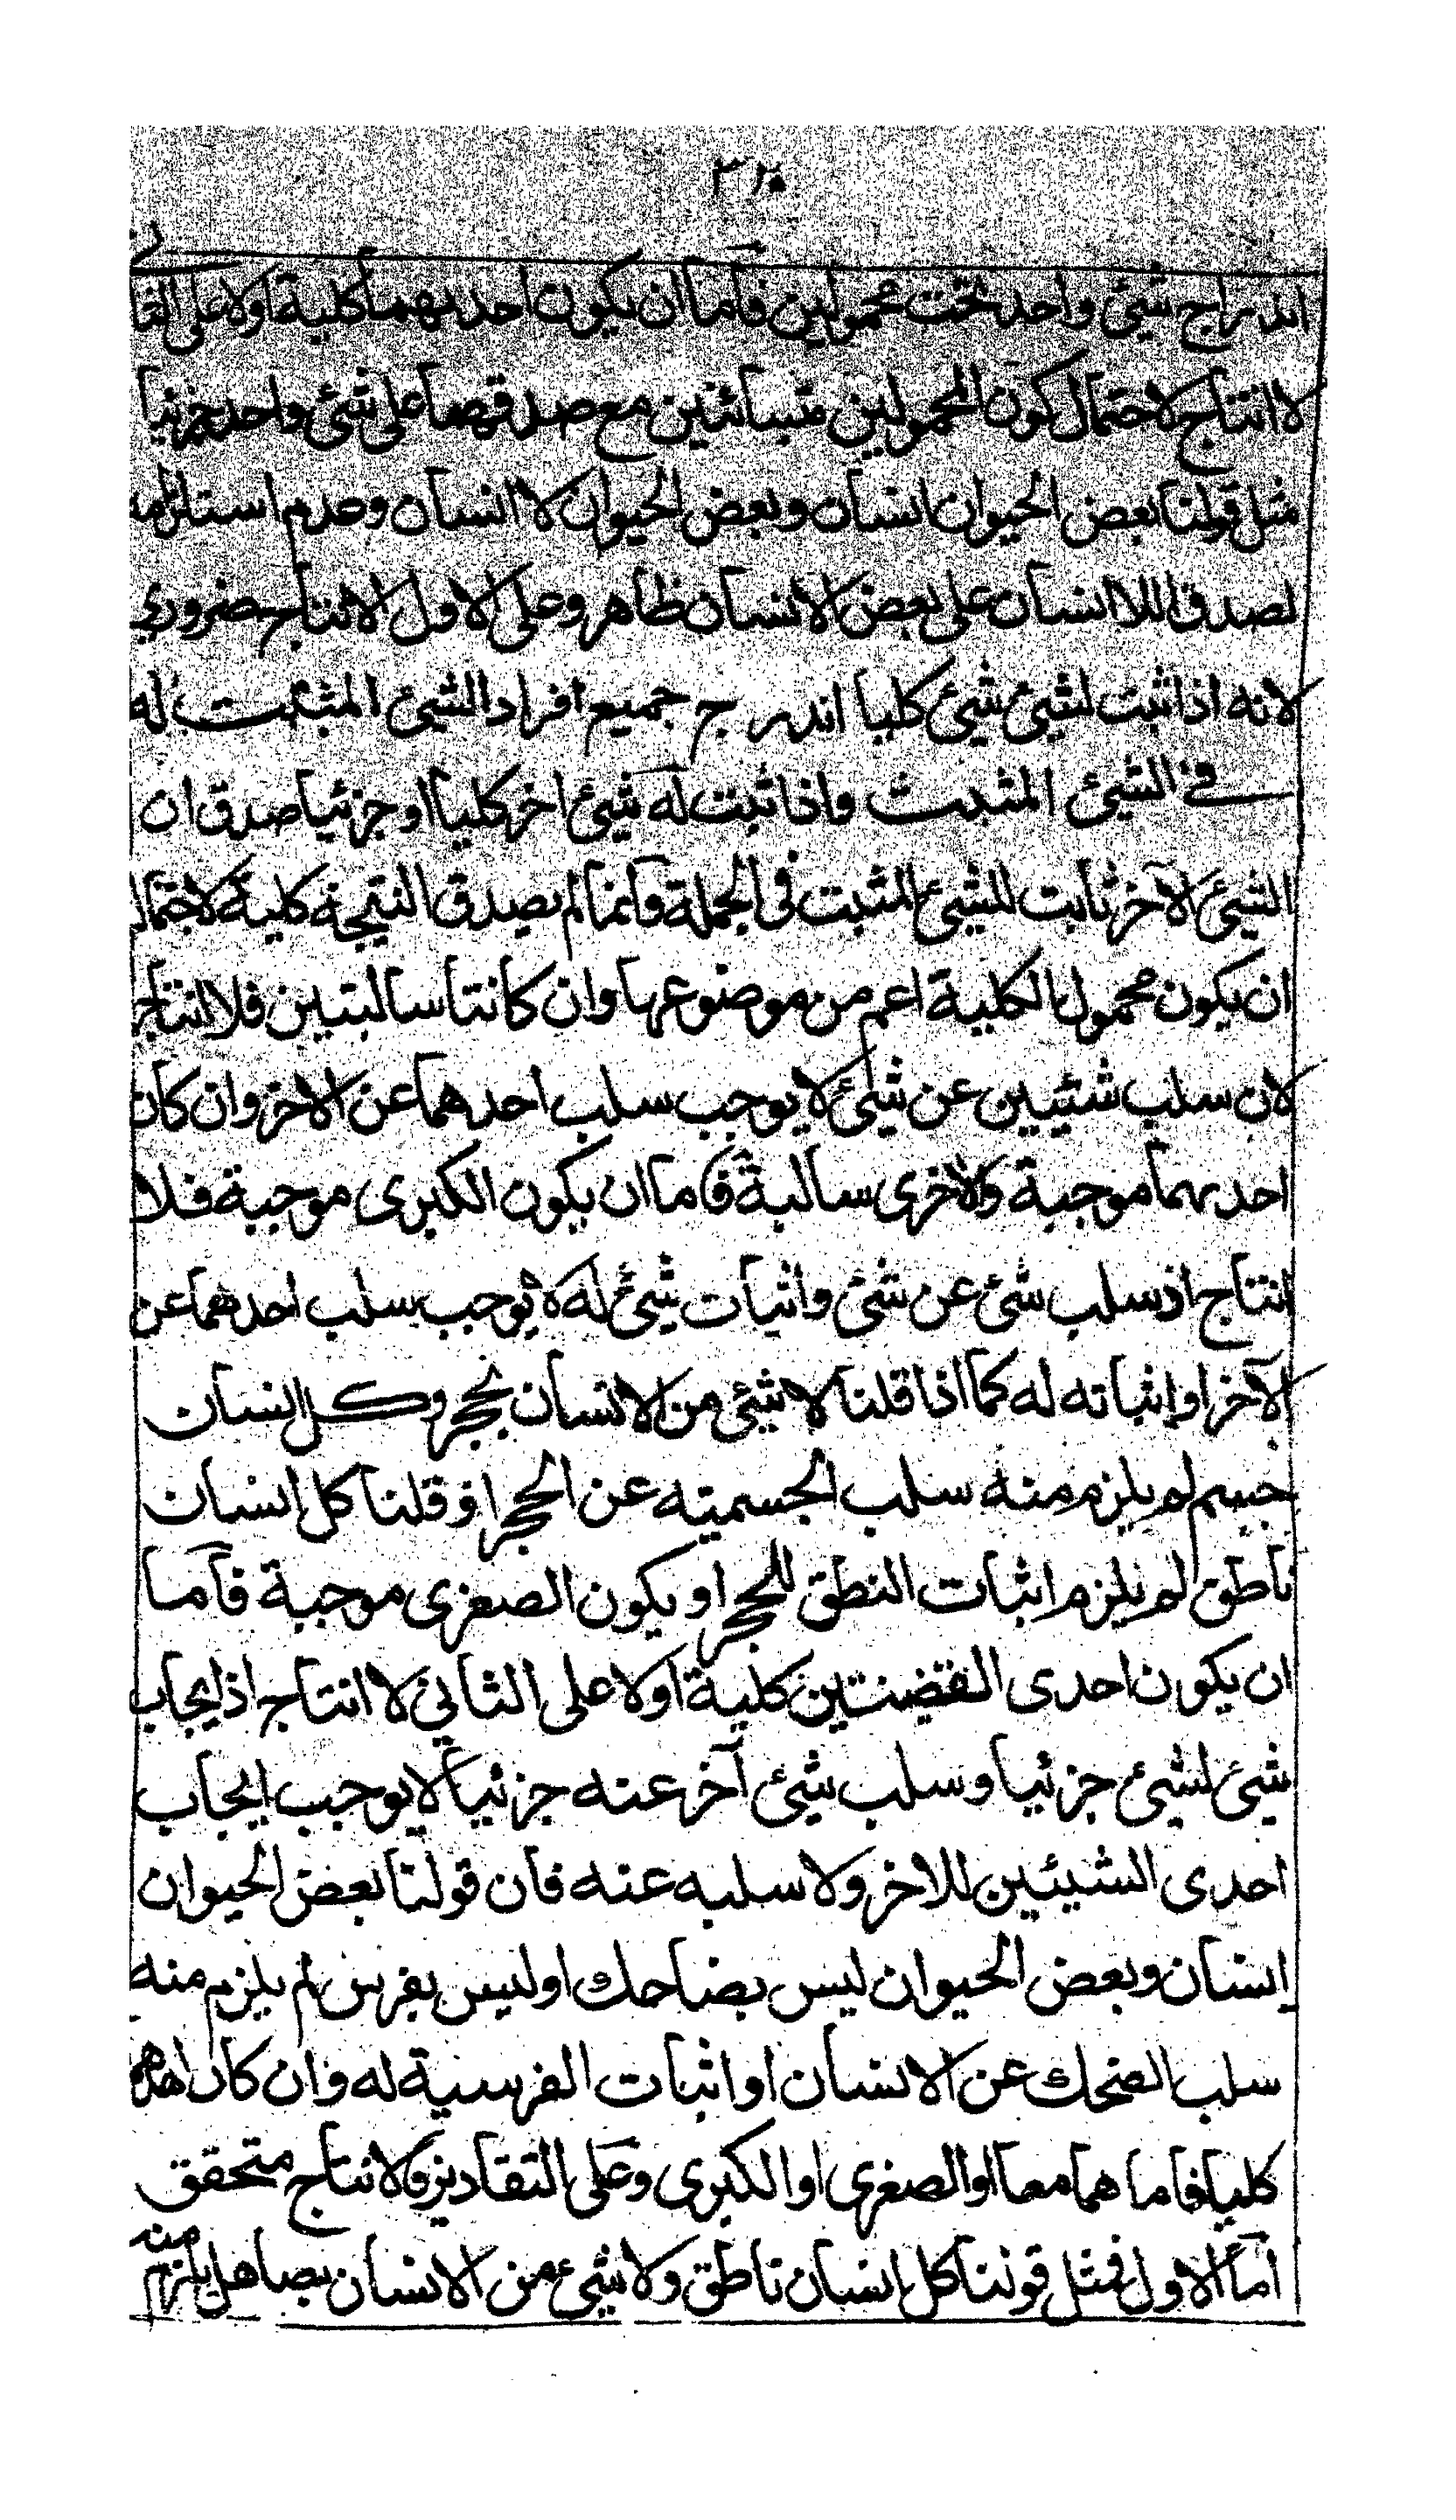 ٣٢٠
اندراج شيئ واحد تحت محمولين فاما ان يكون احديهما كلية اولا على الثا
ني
لا انتاج لاحتمال كون المحمولين متبائنين مع صدقهما على شيئ واحد جزئيا
مثل قولنا بعض الحيوان انسان وبعض الحيوان لا انسان وعدم استلزامه
لصدق اللا انسان على بعض الانسان ظاهر وعلى الاول الانتاج ضروري
لانه اذا ثبت لشيئ شيئ كليا اندرج جميع افراد الشيئ المثبت له
في الشيئ المثبت واذا ثبت له شيئ اخر كليا او جزئيا صدق ان
الشيئ الآخر ثابت للشيئ المثبت في الجملة وانما لم يصدق النتيجة كلية لاحتمال
ان يكون محمول الكلية اعم من موضوعها وان كانتا سالبتين فلا انتاج
لان سلب شيئيين عن شيئ لا يوجب سلب احدهما عن الاخر وان كان
احديهما موجبة والاخرى سالبة فاما ان يكون الكبرى موجبة فلا
انتاج اذ سلب شئ عن شئ واثبات شيئ له لا يوجب سلب احدهما عن
الآخر او إثباته له كما اذا قلنا لا شيئ من الانسان بحجر وكل انسان
جسم لم يلزم منه سلب الجسمية عن الحجر او قلنا كل انسان
ناطق لم يلزم اثبات النطق للحجر او يكون الصغرى موجبة فاما
ان يكون احدى القضيتين كلية اولا على الثاني لا انتاج اذ ايجاب
شيئ لشيئ جزئيا وسلب شيئ آخر عنه جزئيا لا يوجب ايجاب
احدى الشيئين للاخر ولا سلبه عنه فان قولنا بعض الحيوان
إنسان وبعض الحيوان ليس بضاحك او ليس بفرس لم يلزم منه
سلب الضحك عن الانسان او اثبات الفرسية له وان كان احدهما
كليا فاما هما معا او الصغرى او الكبرى وعلى التقادير والانتاج متحقق
اما الاول فمثل قولنا كل انسان ناطق ولا شيئ من الانسان بصاهل يلزم منه